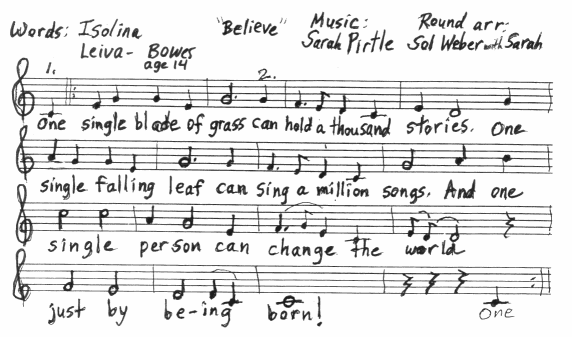 Words: Isolina "Believe" Music: Round arr:
Leiva- Bowes Sarah Pirtle Sol Weber with Sarah
age 14
1. 2.
One single blade of grass can hold a thousand stories. One
single falling leaf can sing a million songs. And one
single person can change the world
just by be-ing born! One